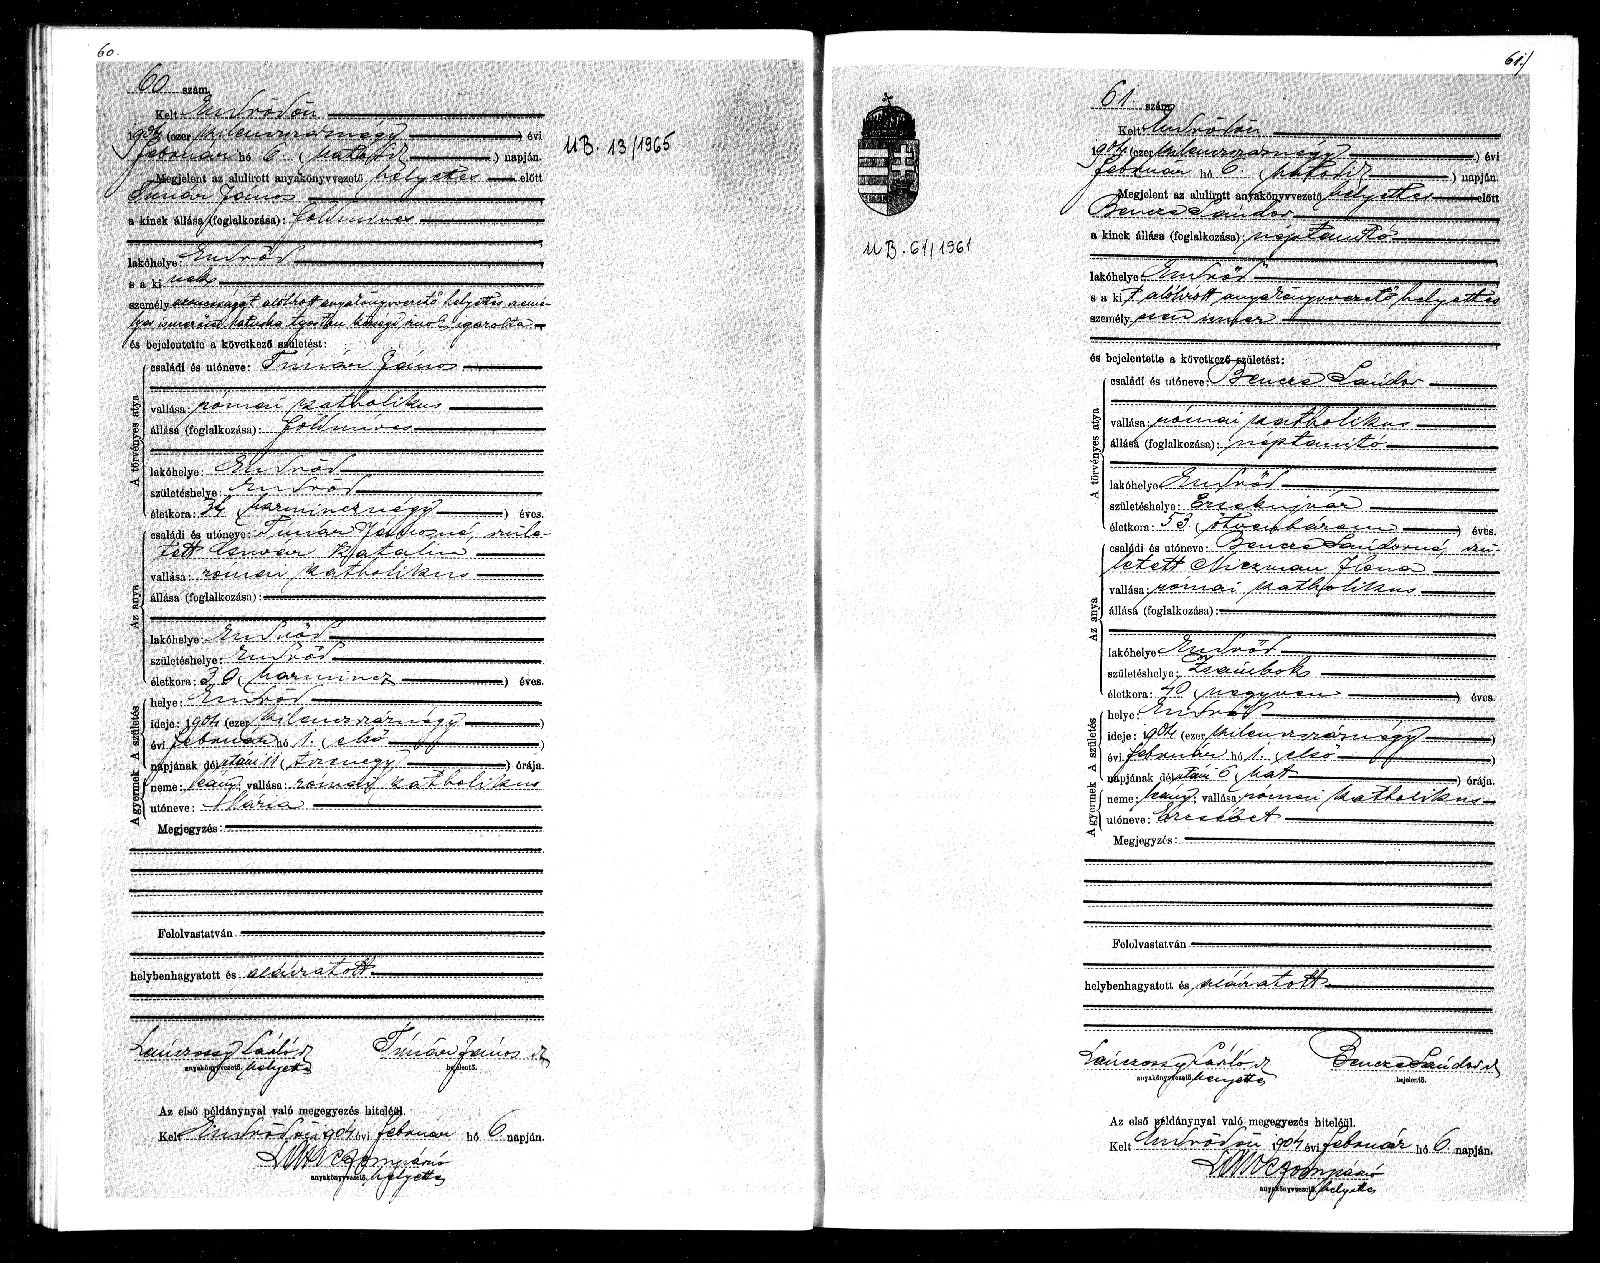 60.
60 szám.
Kelt Endrődön
1904 (ezer kilenczszáznégy) évi
február hó 6. (hatodik) napján.
Megjelent az alulirott anyakönyvvezető helyettes előtt
Timár János
a kinek állása (foglalkozása): földmives
lakóhelye: Endrőd
s a ki nek
személyazonosságát alólirott anyakönyvvezető helyettes
igazolta
és bejelentette a következő születést:
A törvényes atya
családi és utóneve: Timár János
vallása: római katholikus
állása (foglalkozása): földmives
lakóhelye: Endrőd
születéshelye: Endrőd
életkora: 34 (harmincznégy) éves.
Az anya
családi és utóneve: Timár Jánosné, szüle-
tett Katalin
vallása: római katholikus
állása (foglalkozása):
lakóhelye: Endrőd
születéshelye: Endrőd
életkora: 30 (harmincz) éves.
A gyermek A születés
helye: Endrőd
ideje: 1904 (ezer kilenczszáznégy)
évi február hó 1. (első)
napjának délutáni 11 (tizenegy) órája.
neme: leány; vallása: római katholikus
utóneve: Mária
Megjegyzés:
Felolvastatván
helybenhagyatott és aláiratott
László Timár János
anyakönyvvezető helyettes bejelentő.
Az első példánynyal való megegyezés hiteléül.
Kelt Endrődön 1904 évi február hó 6 napján.
anyakönyvvezető helyettes
UB. 13/1965
61)
61 szám
Kelt Endrődön
1904 (ezer kilenczszáznégy) évi
február hó 6. (hatodik) napján.
Megjelent az alulirott anyakönyvvezető helyettes előtt
Bencze Sándor
a kinek állása (foglalkozása): néptanitó
lakóhelye Endrőd
s a ki t alólirott anyakönyvvezető helyettes
személyesen ismer
és bejelentette a következő születést:
A törvényes atya
családi és utóneve: Bencze Sándor
vallása: római katholikus
állása (foglalkozása): néptanitó
lakóhelye Endrőd
születéshelye: Érsekujvár
életkora: 53 (ötvenhárom) éves.
Az anya
családi és utóneve: Bencze Sándorné, szü-
letett Ilona
vallása: római katholikus
állása (foglalkozása):
lakóhelye: Endrőd
születéshelye: Zsámbok
életkora: 40 (negyven) éves.
A gyermek A születés
helye: Endrőd
ideje: 1904 (ezer kilenczszáznégy)
évi február hó 1. (első)
napjának délutáni 6 (hat) órája.
neme: leány; vallása: római katholikus
utóneve: Erzsébet
Megjegyzés:
Felolvastatván
helybenhagyatott és aláiratott
László Bencze Sándor
anyakönyvvezető helyettes bejelentő.
Az első példánynyal való megegyezés hiteléül.
Kelt Endrődön 1904 évi február hó 6 napján.
anyakönyvvezető helyettes
UB. 61/1961